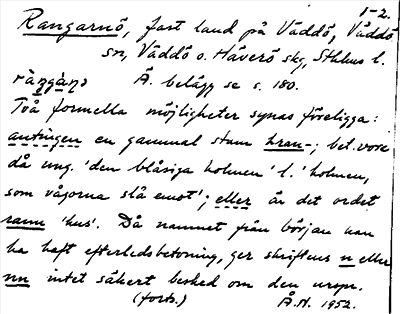 1-2.
Rangarnö, fast land på Väddö, Väddö
sn, Väddö o. Häverö skg, Sthlms l.
Ä. belägg se s. 180.
Två formella möjligheter synas föreligga:
antingen en gammal stam hran-; bet. vore
då ung. 'den blåsiga holmen' l. 'holmen,
som vågorna slå emot'; eller är det ordet
rann 'hus'. Då namnet från början kan
ha haft efterledsbetoning, ger skriftens n eller
nn intet säkert besked om den urspr.
(forts.) Å.N. 1952.